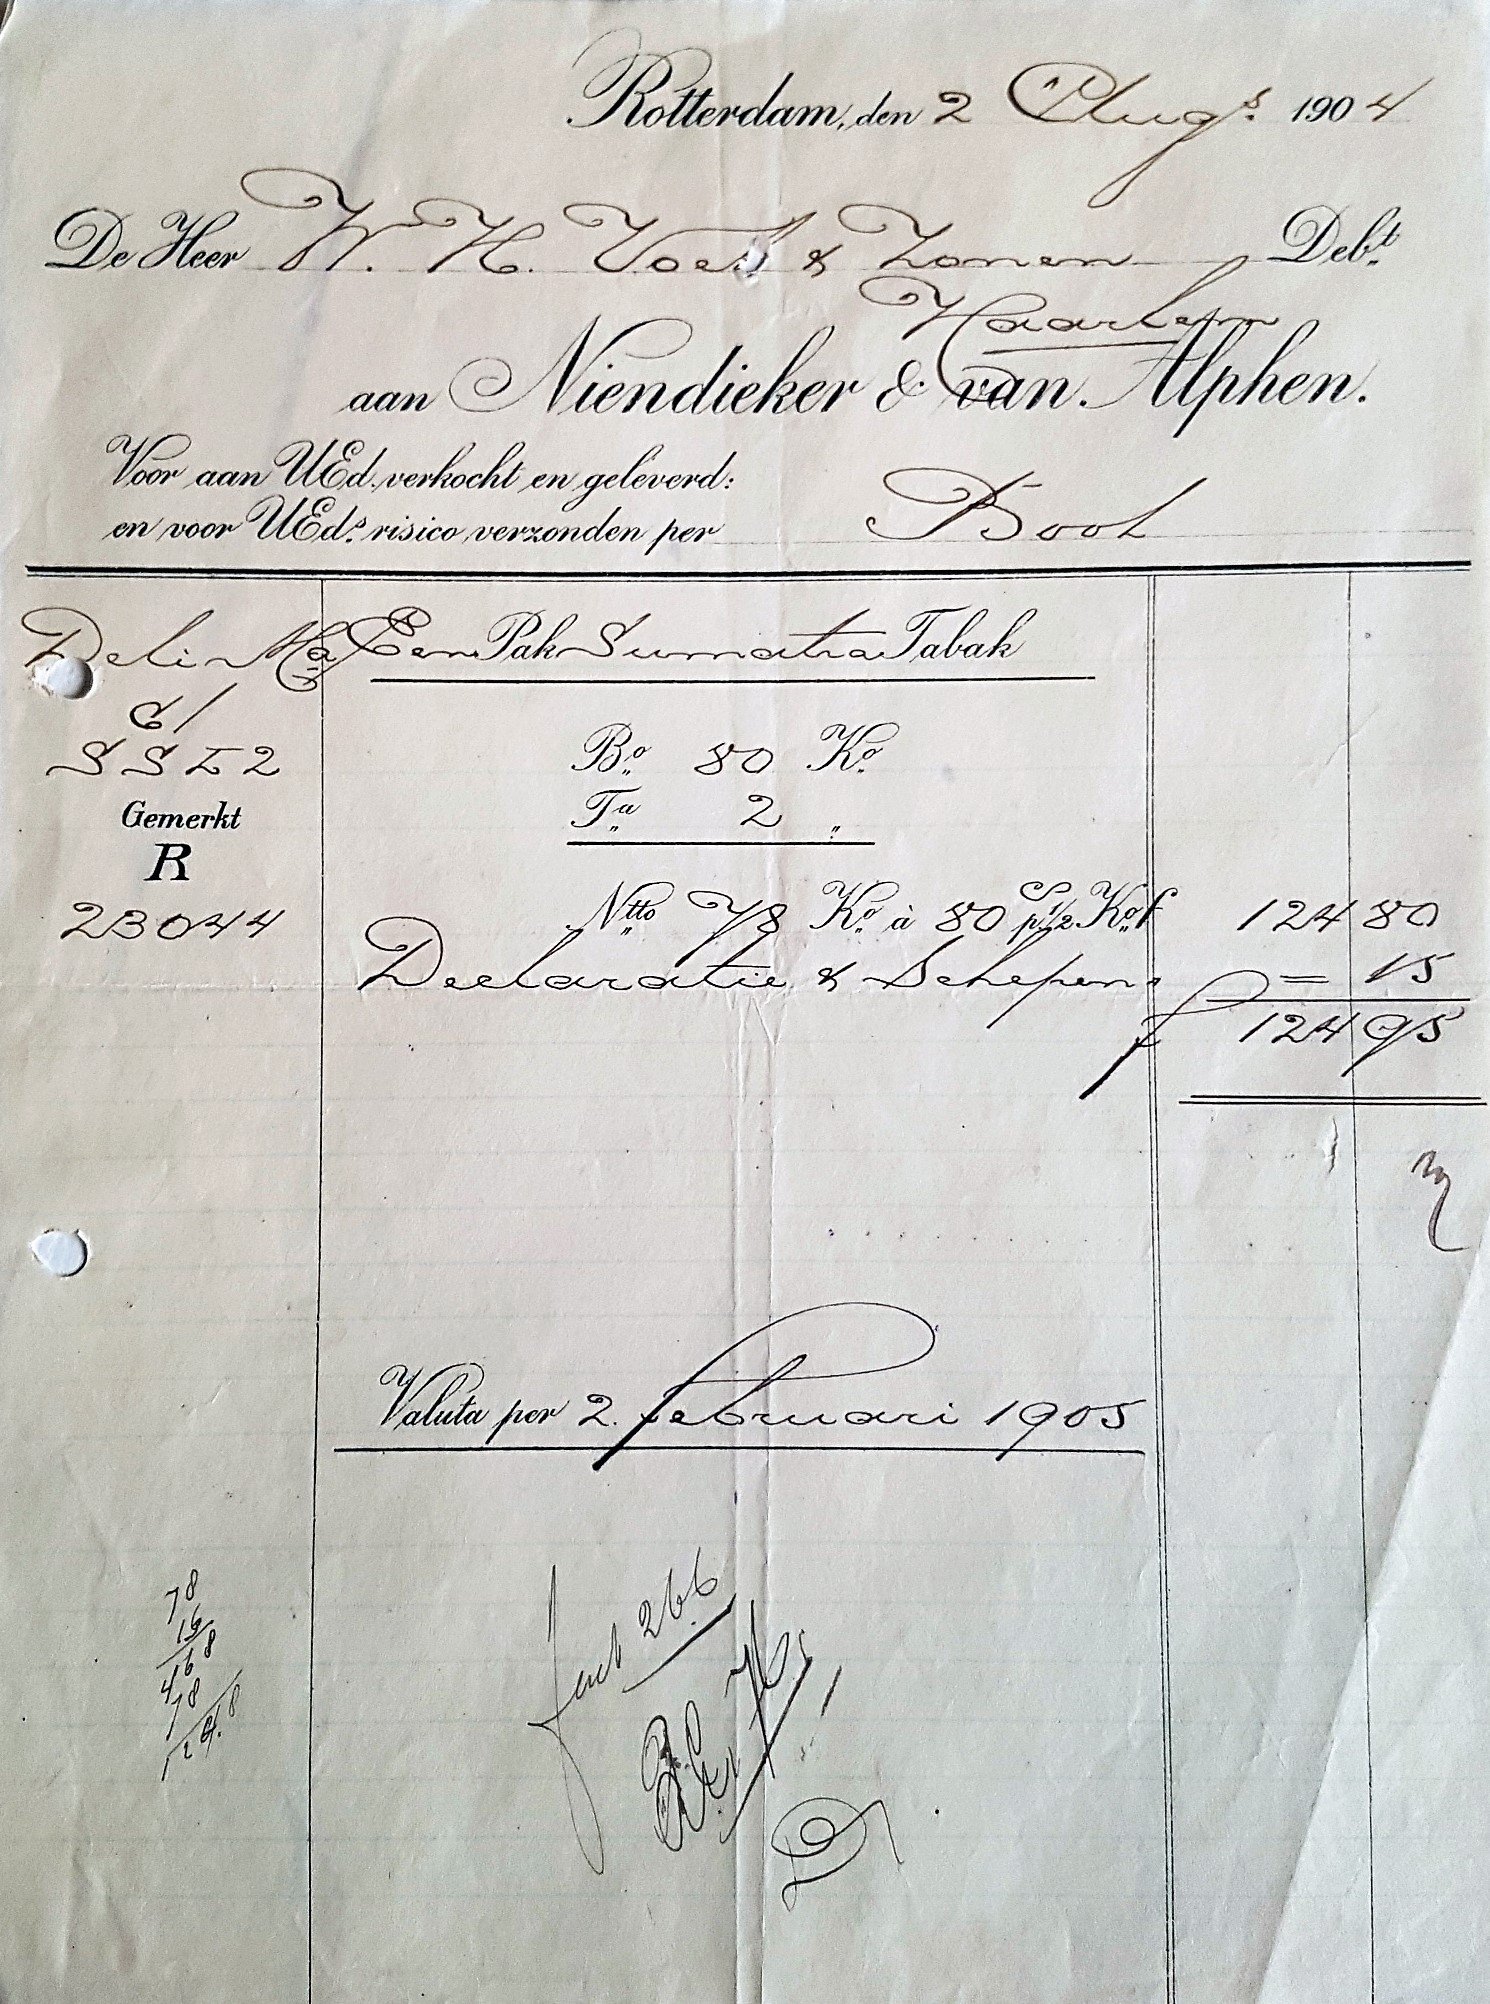 Rotterdam, den 2 Augs. 1904
De Heer W. H. Voet & Zonen Debt.
Haarlem
aan Niendieker & van Alphen.
Voor aan UEd. verkocht en geleverd:
en voor UEds. risico verzonden per Boot
Deli Een Pak Sumatra Tabak
SSL2
Bo. 80 Ko.
Ta. 2 "
Gemerkt
R
23044
Ntto 78 Ko. à 80 Cs p. 1/2 Ko. f 124 80
Declaratie & Schepen = 15
f 124 95
Valuta per 2. Februari 1905
78
16
468
78
124.8
266